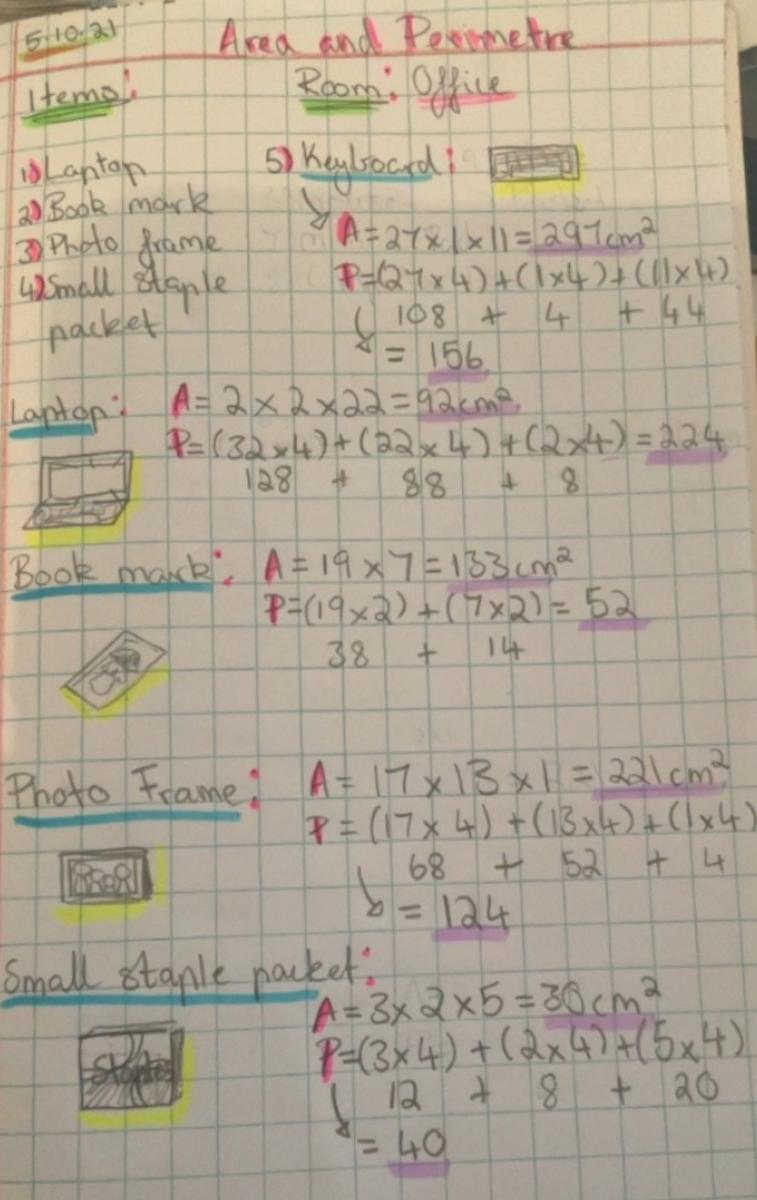 5.10.21
Area and Perimetre
Items:
Room: Office
1) Laptop
2) Book mark
3) Photo frame
4) Small staple
packet
5) Keyboard:
A=27×1×11=297cm²
P=(27×4)+(1×4)+(11×4)
108 + 4 + 44
= 156
Laptop: A= 2×2×22=92cm²
P=(32×4)+(22×4)+(2×4)=224
128 + 88 + 8
Book mark: A=19×7=133cm²
P=(19×2)+(7×2)= 52
38 + 14
Photo Frame: A= 17×13×1 = 221cm²
P=(17×4)+(13×4)+(1×4)
68 + 52 + 4
= 124
Small staple packet:
A=3×2×5=30cm²
P=(3×4)+(2×4)+(5×4)
12 + 8 + 20
= 40
Staples